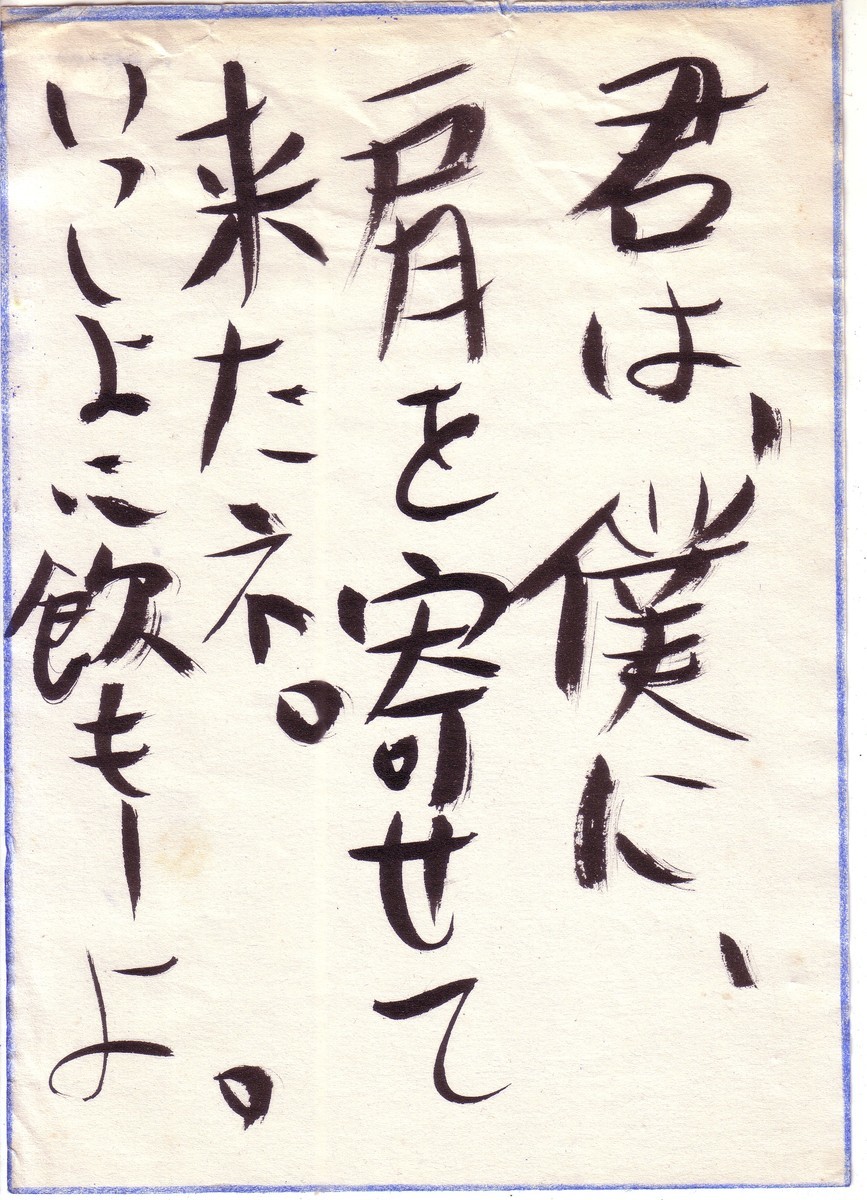 君は、僕に、
肩を寄せて
来たネ。
いっしょに飲もーよ。